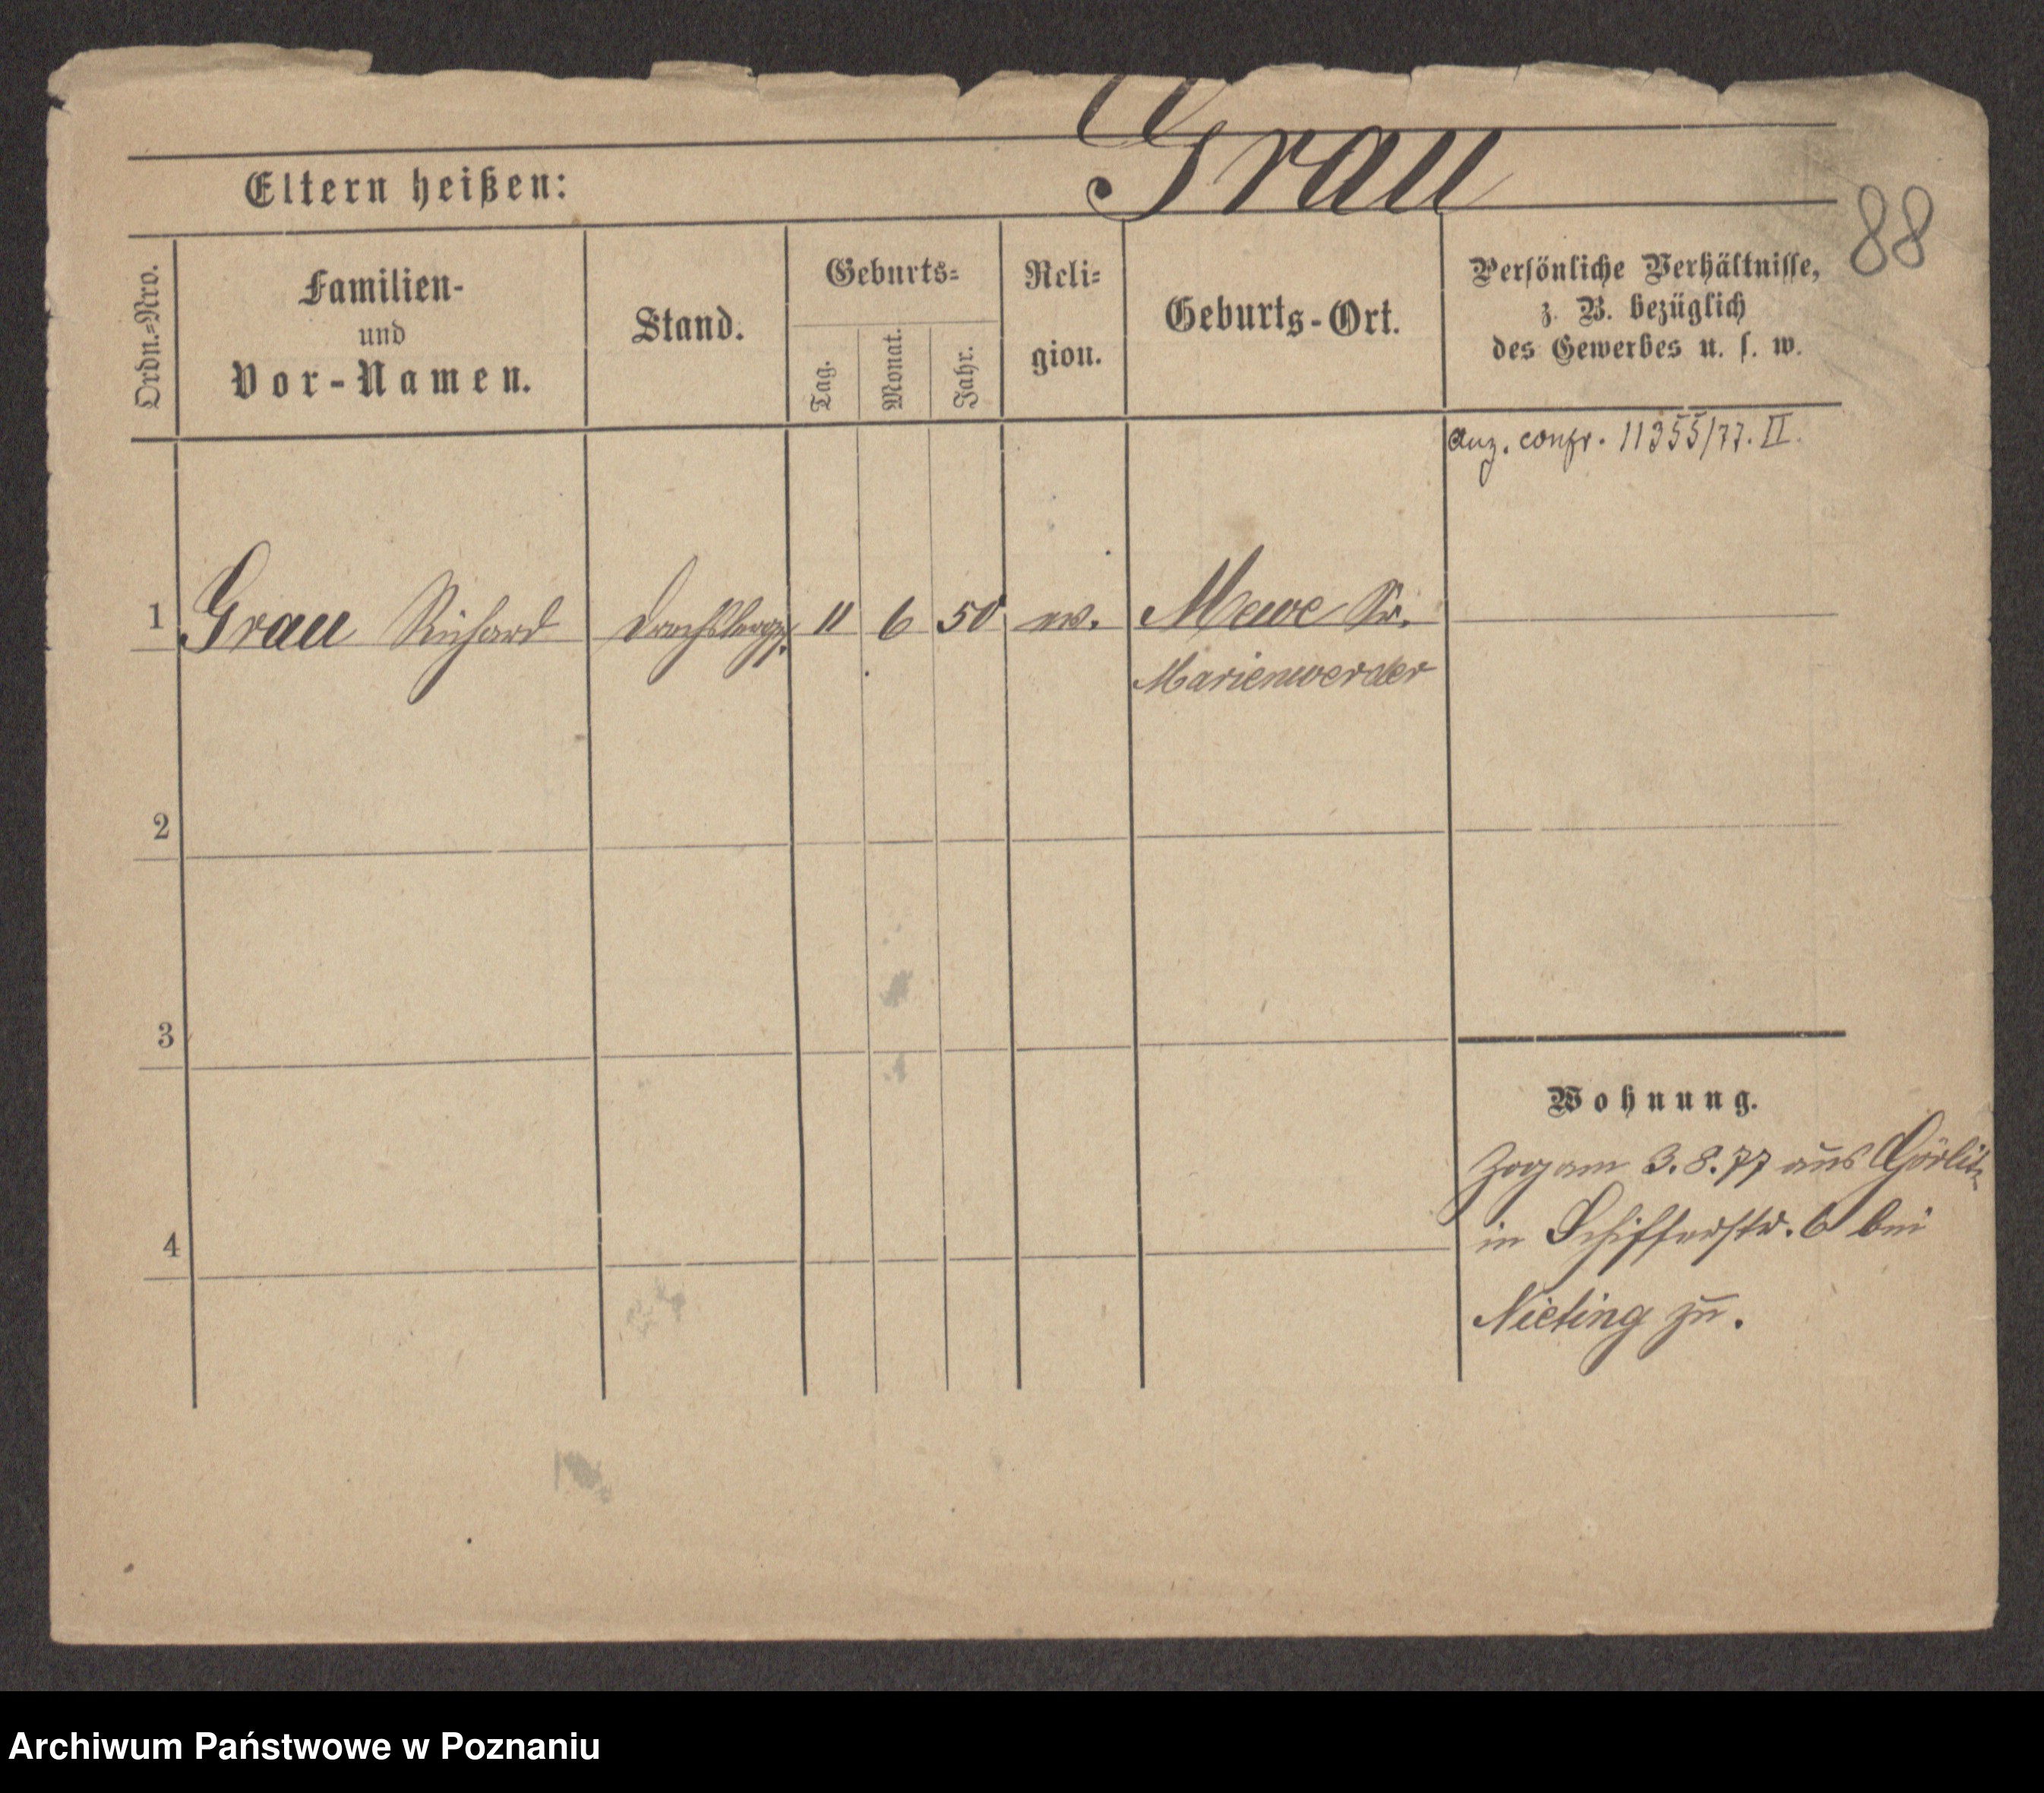 Grau
Eltern heißen:
88
Ordn.=Nro.
Familien-
und
Vor-Namen.
Stand.
Geburts=
Tag.
Monat.
Jahr.
Reli=
gion.
Geburts-Ort.
Persönliche Verhältnisse,
z. B. bezüglich
des Gewerbes u. s. w.
Anz. confr. 11355/77. II.
1 Grau Richard 11 6 50 ev. Mewe Kr.
Marienwerder
2
3
4
Wohnung.
Zog am 3.8.77 aus Görlitz
in Schifferstr. 6 bei
Nieting zu.
Archiwum Państwowe w Poznaniu